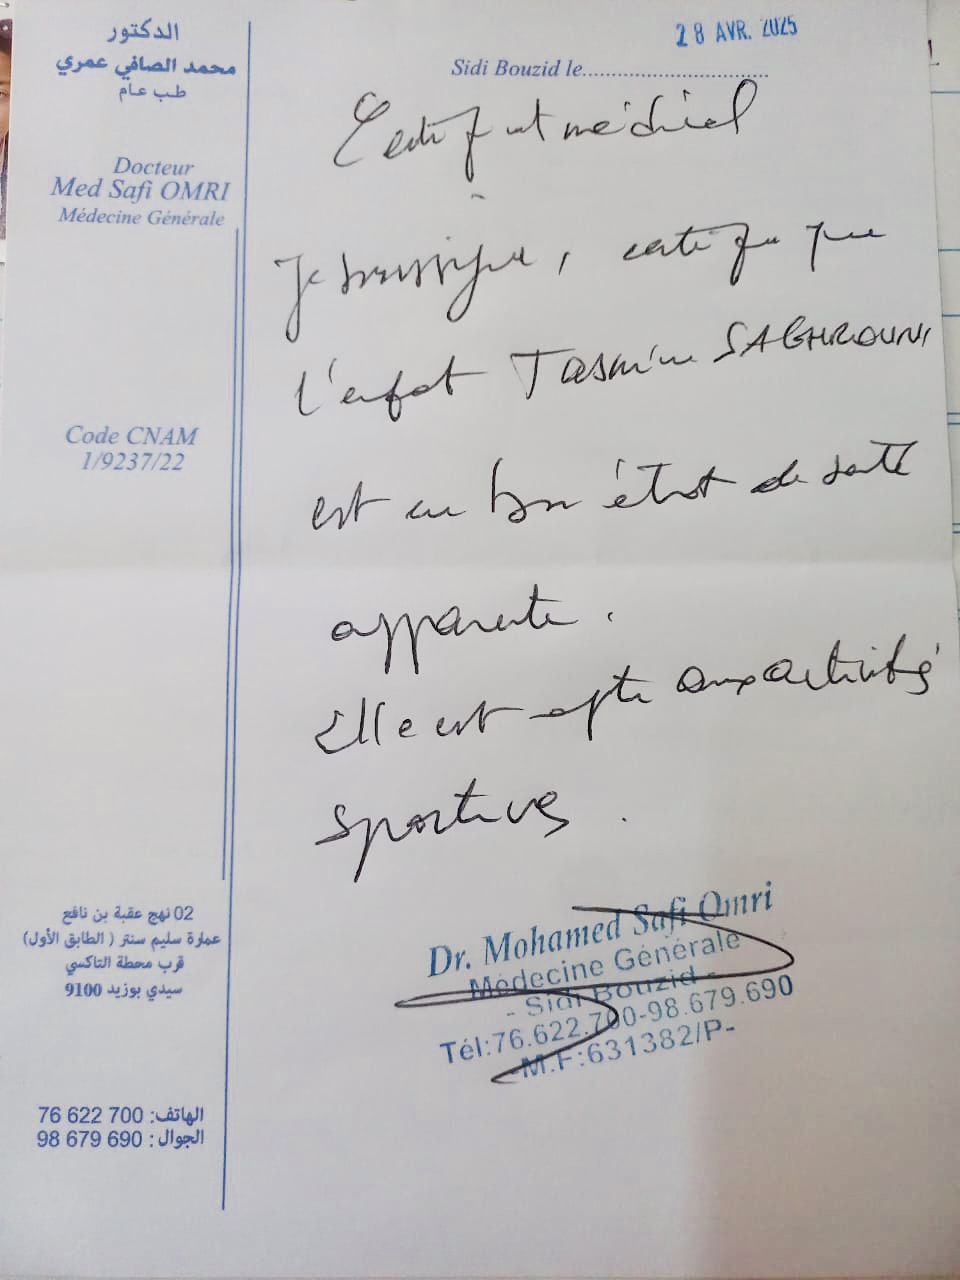 الدكتور
محمد الصافي عمري
طب عام
Docteur
Med Safi OMRI
Médecine Générale
Code CNAM
1/9237/22
28 AVR. 2025
Sidi Bouzid le
Certificat médical
Je soussigné, certifie que
l'enfant Tasnim SAGHROUNI
est en bon état de santé
apparente.
Elle est apte aux activités
sportives.
Dr. Mohamed Safi Omri
Médecine Générale
- Sidi Bouzid -
Tél:76.622.700-98.679.690
-M.F:631382/P-
02 نهج عقبة بن نافع
عمارة سليم سنتر ( الطابق الأول)
قرب محطة التاكسي
سيدي بوزيد 9100
الهاتف: 76 622 700
الجوال : 98 679 690